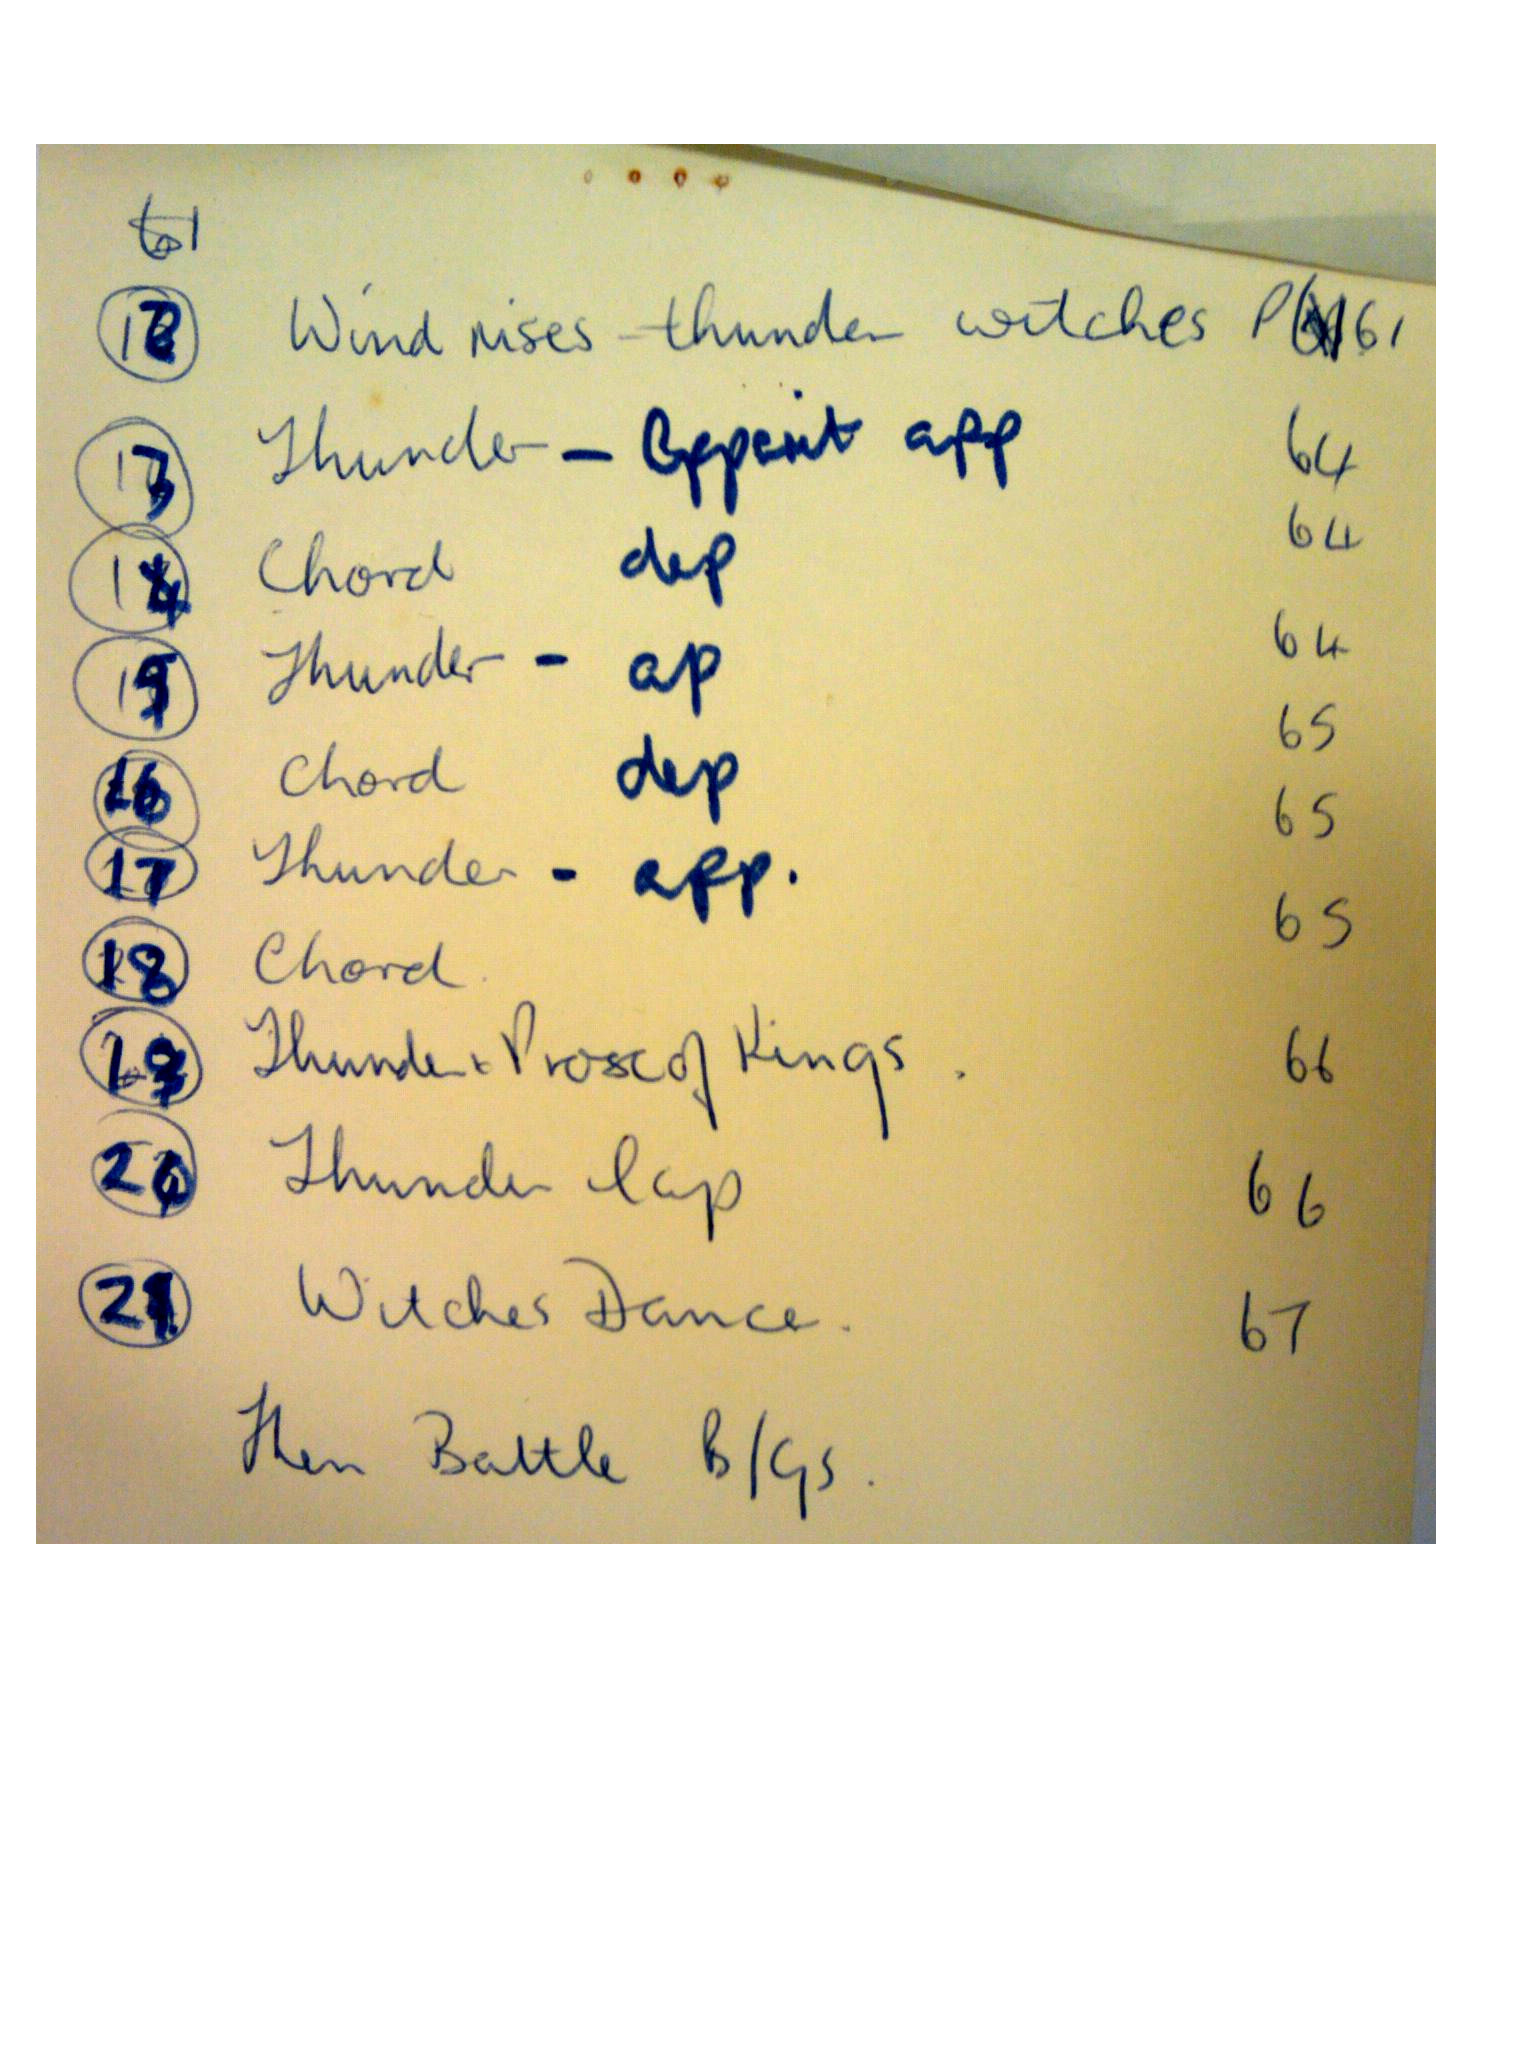 61
12 Wind rises - thunder witches P 61
13 Thunder - Apparit app 64
14 Chord dep 64
15 Thunder - ap 64
16 Chord dep 65
17 Thunder - app. 65
18 Chord. 65
19 Thunder + Proscof Kings. 66
20 Thunder lap 66
21 Witches Dance. 67
Then Battle B/Gs.